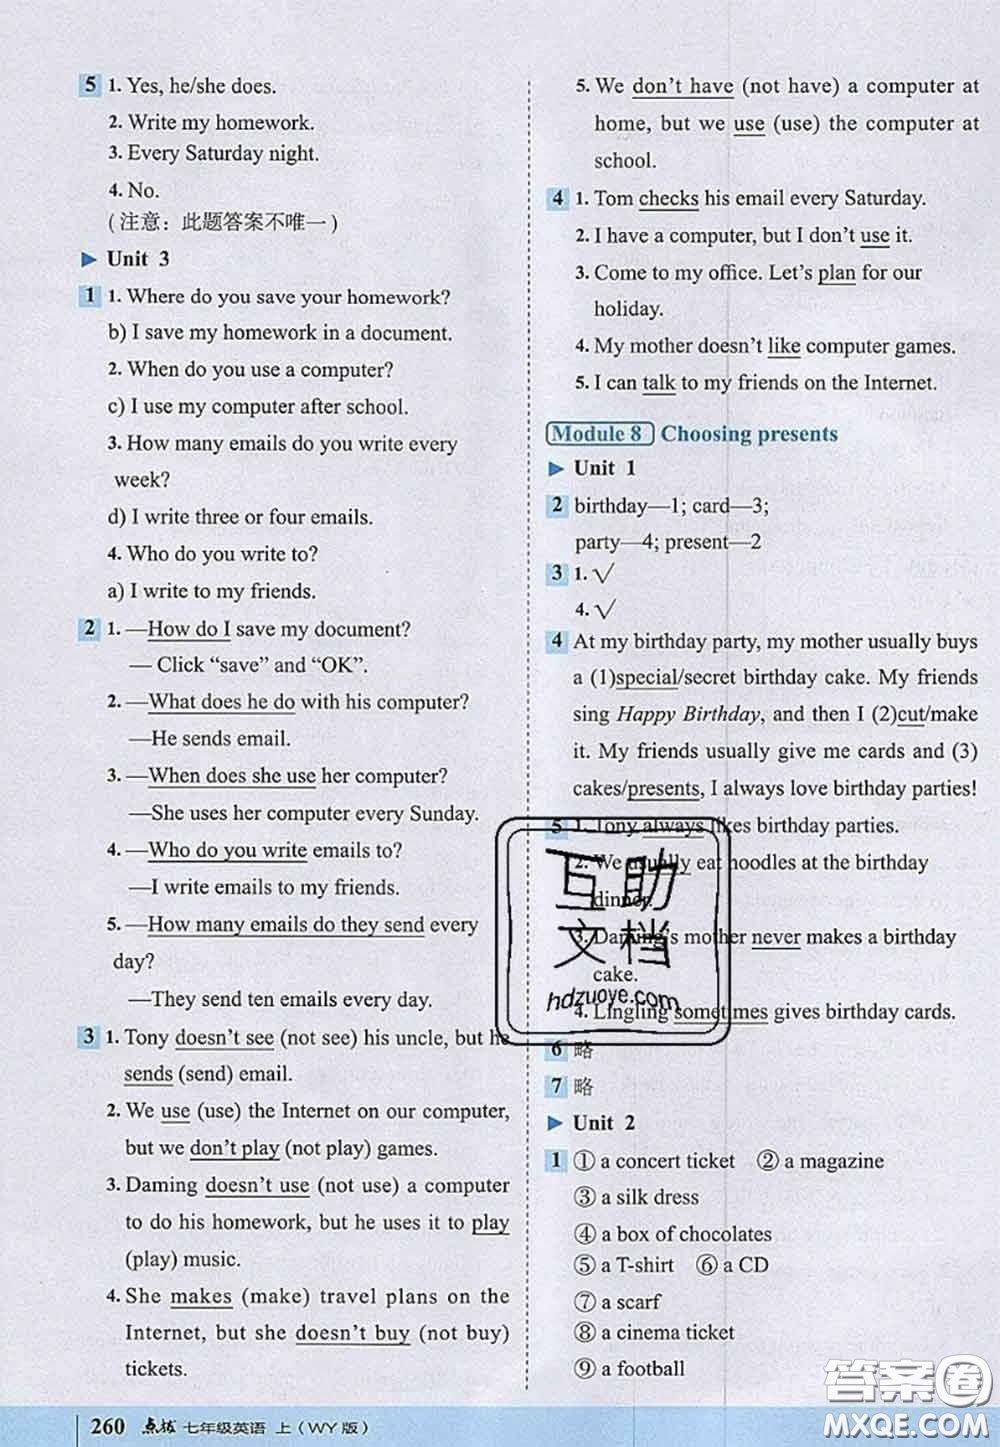 5 1. Yes, he/she does.
2. Write my homework.
3. Every Saturday night.
4. No.
(注意：此题答案不唯一)
▶ Unit 3
1 1. Where do you save your homework?
b) I save my homework in a document.
2. When do you use a computer?
c) I use my computer after school.
3. How many emails do you write every
week?
d) I write three or four emails.
4. Who do you write to?
a) I write to my friends.
2 1. —How do I save my document?
— Click “save” and “OK”.
2. —What does he do with his computer?
—He sends email.
3. —When does she use her computer?
—She uses her computer every Sunday.
4. —Who do you write emails to?
—I write emails to my friends.
5. —How many emails do they send every
day?
—They send ten emails every day.
3 1. Tony doesn’t see (not see) his uncle, but he
sends (send) email.
2. We use (use) the Internet on our computer,
but we don’t play (not play) games.
3. Daming doesn’t use (not use) a computer
to do his homework, but he uses it to play
(play) music.
4. She makes (make) travel plans on the
Internet, but she doesn’t buy (not buy)
tickets.
5. We don’t have (not have) a computer at
home, but we use (use) the computer at
school.
4 1. Tom checks his email every Saturday.
2. I have a computer, but I don’t use it.
3. Come to my office. Let’s plan for our
holiday.
4. My mother doesn’t like computer games.
5. I can talk to my friends on the Internet.
Module 8 Choosing presents
▶ Unit 1
2 birthday—1; card—3;
party—4; present—2
3 1. √
4. √
4 At my birthday party, my mother usually buys
a (1)special/secret birthday cake. My friends
sing Happy Birthday, and then I (2)cut/make
it. My friends usually give me cards and (3)
cakes/presents, I always love birthday parties!
5 1. Tony always likes birthday parties.
2. We usually eat noodles at the birthday
dinner.
3. Daming’s mother never makes a birthday
cake.
4. Lingling sometimes gives birthday cards.
6 略
7 略
▶ Unit 2
1 ① a concert ticket ② a magazine
③ a silk dress
④ a box of chocolates
⑤ a T-shirt ⑥ a CD
⑦ a scarf
⑧ a cinema ticket
⑨ a football
互助
文档
hdzuoye.com
260 点拨 七年级英语 上(WY版)
答案圈
MXQE.COM